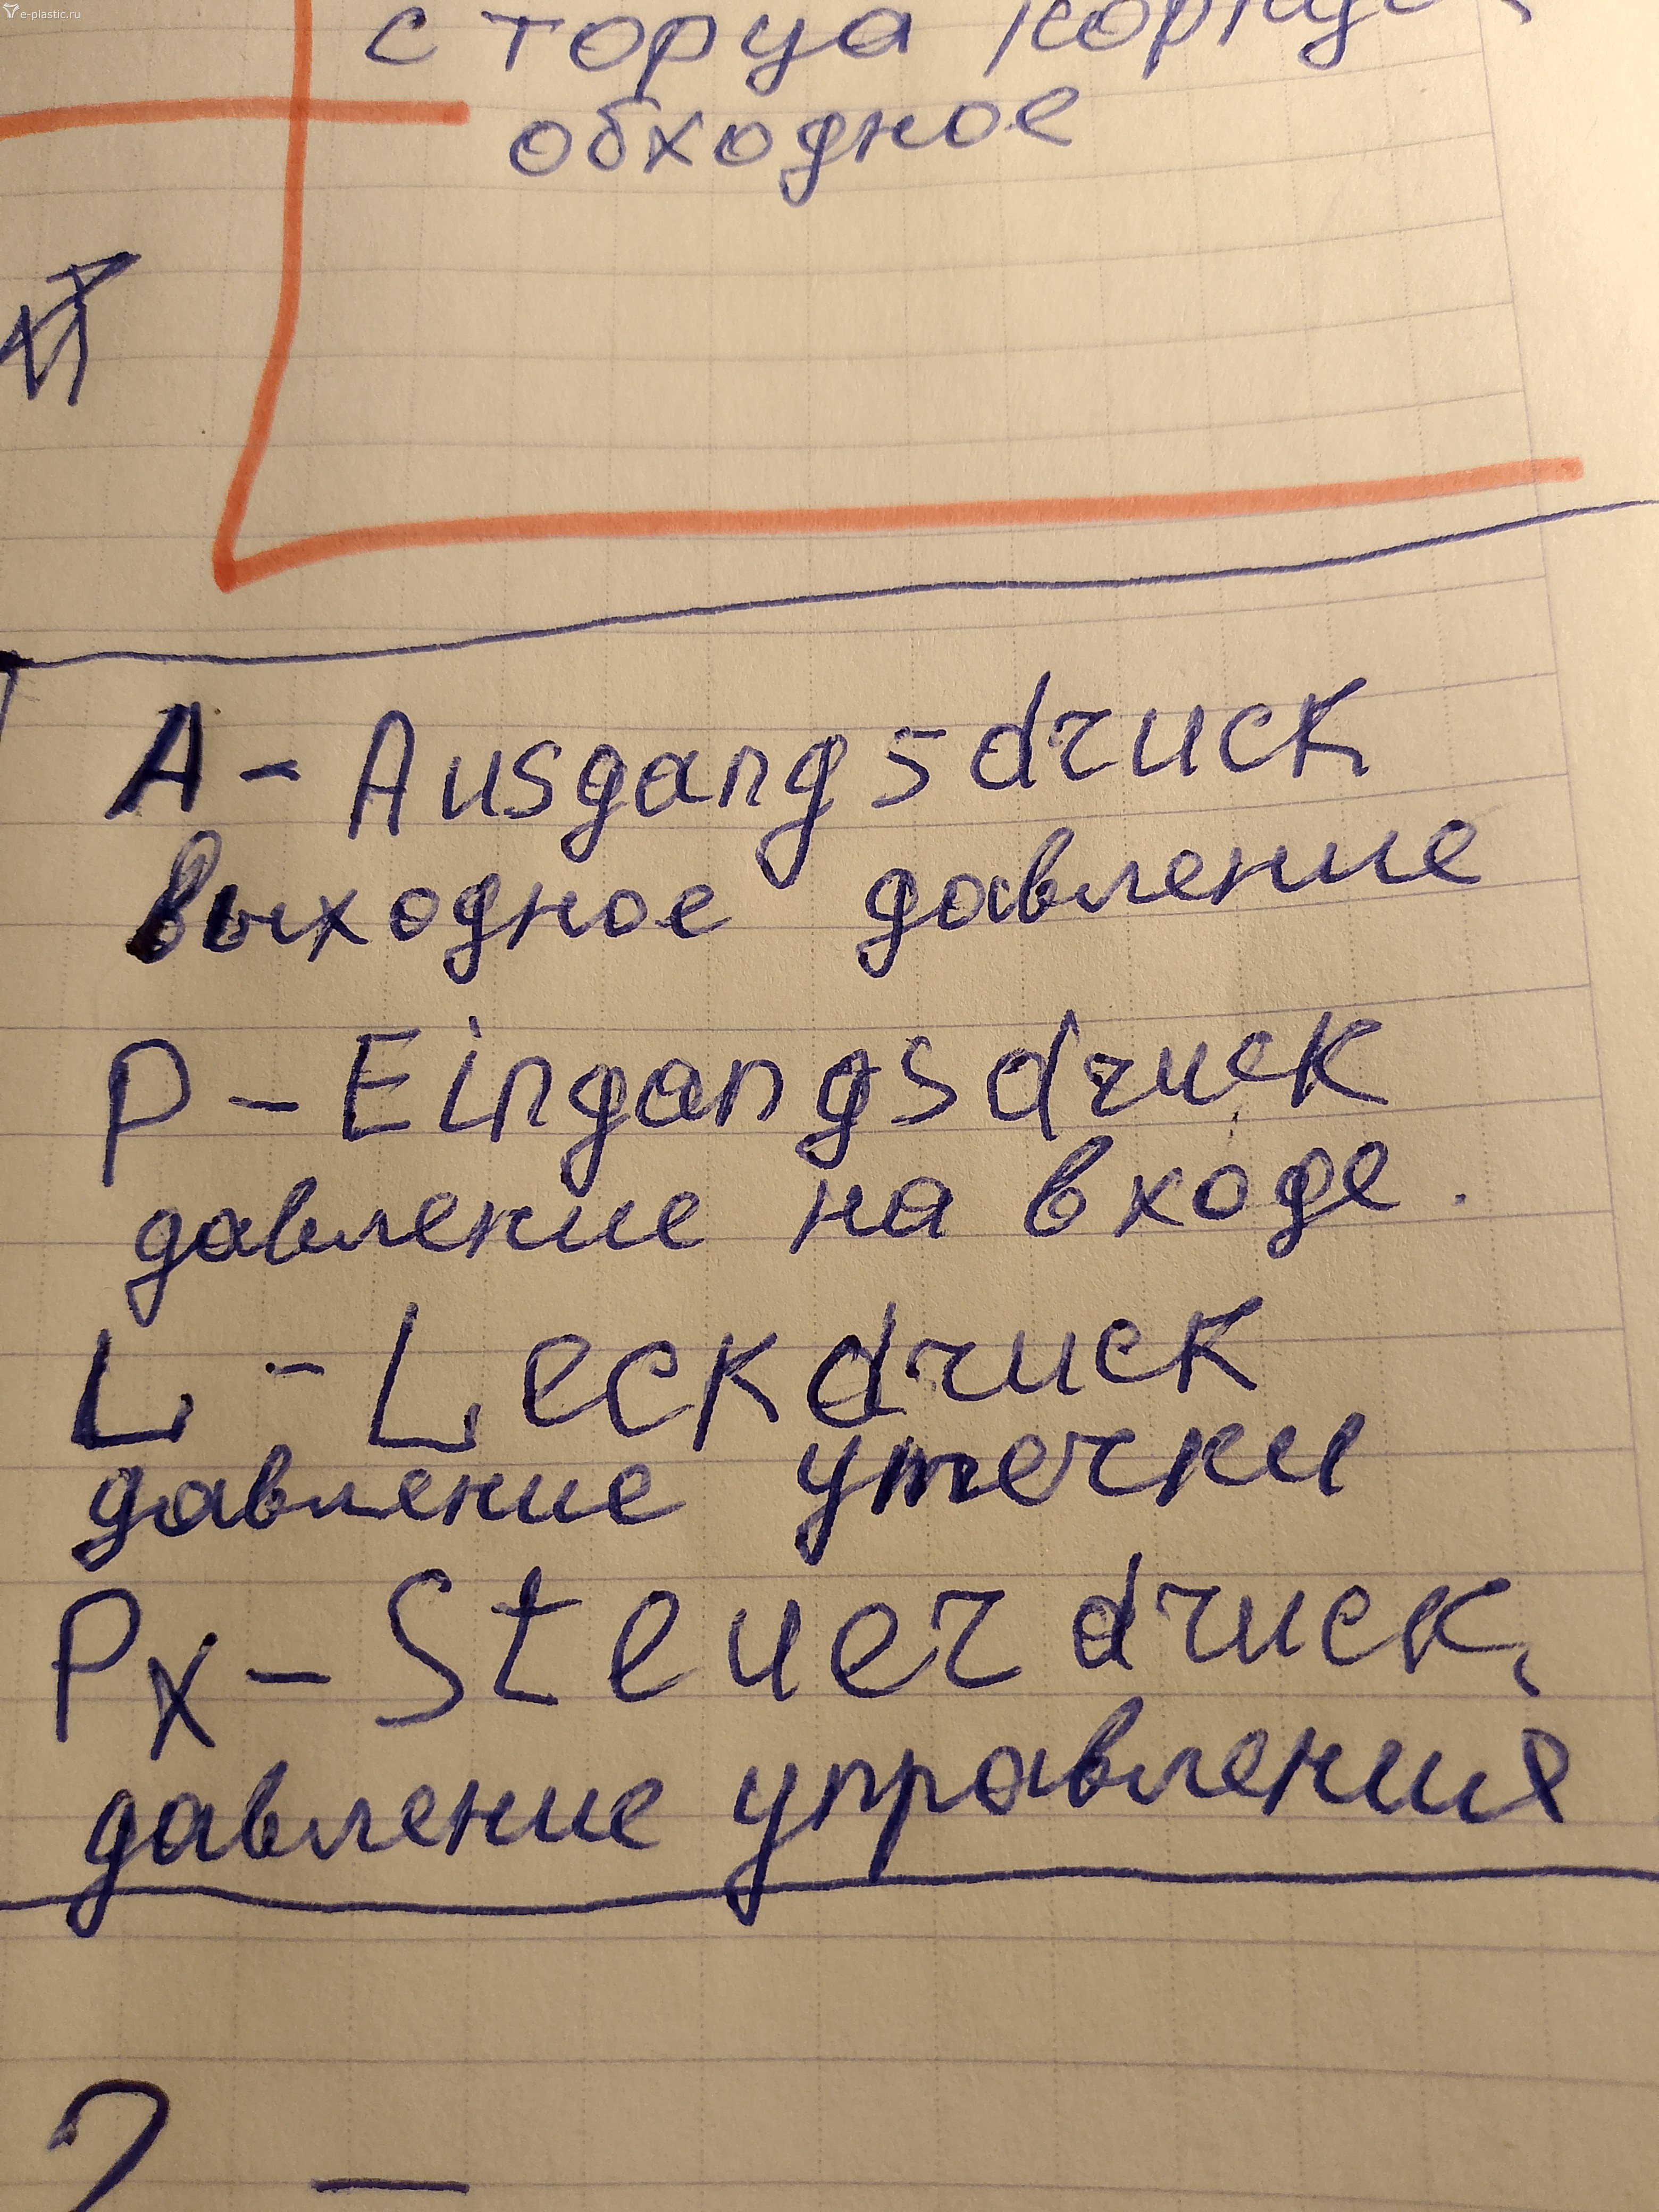 e-plastic.ru
с торца
обходное
A - Ausgangsdruck
выходное давление
P - Eingangsdruck
давление на входе.
L - Leckdruck
давление утечки
Px - Steuerdruck,
давление управления
? -